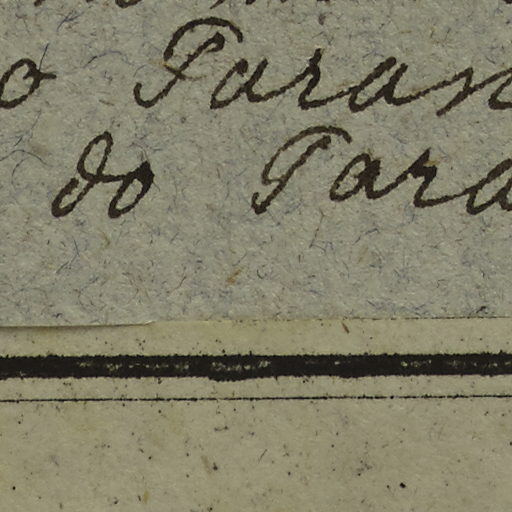 o Paran
do Para